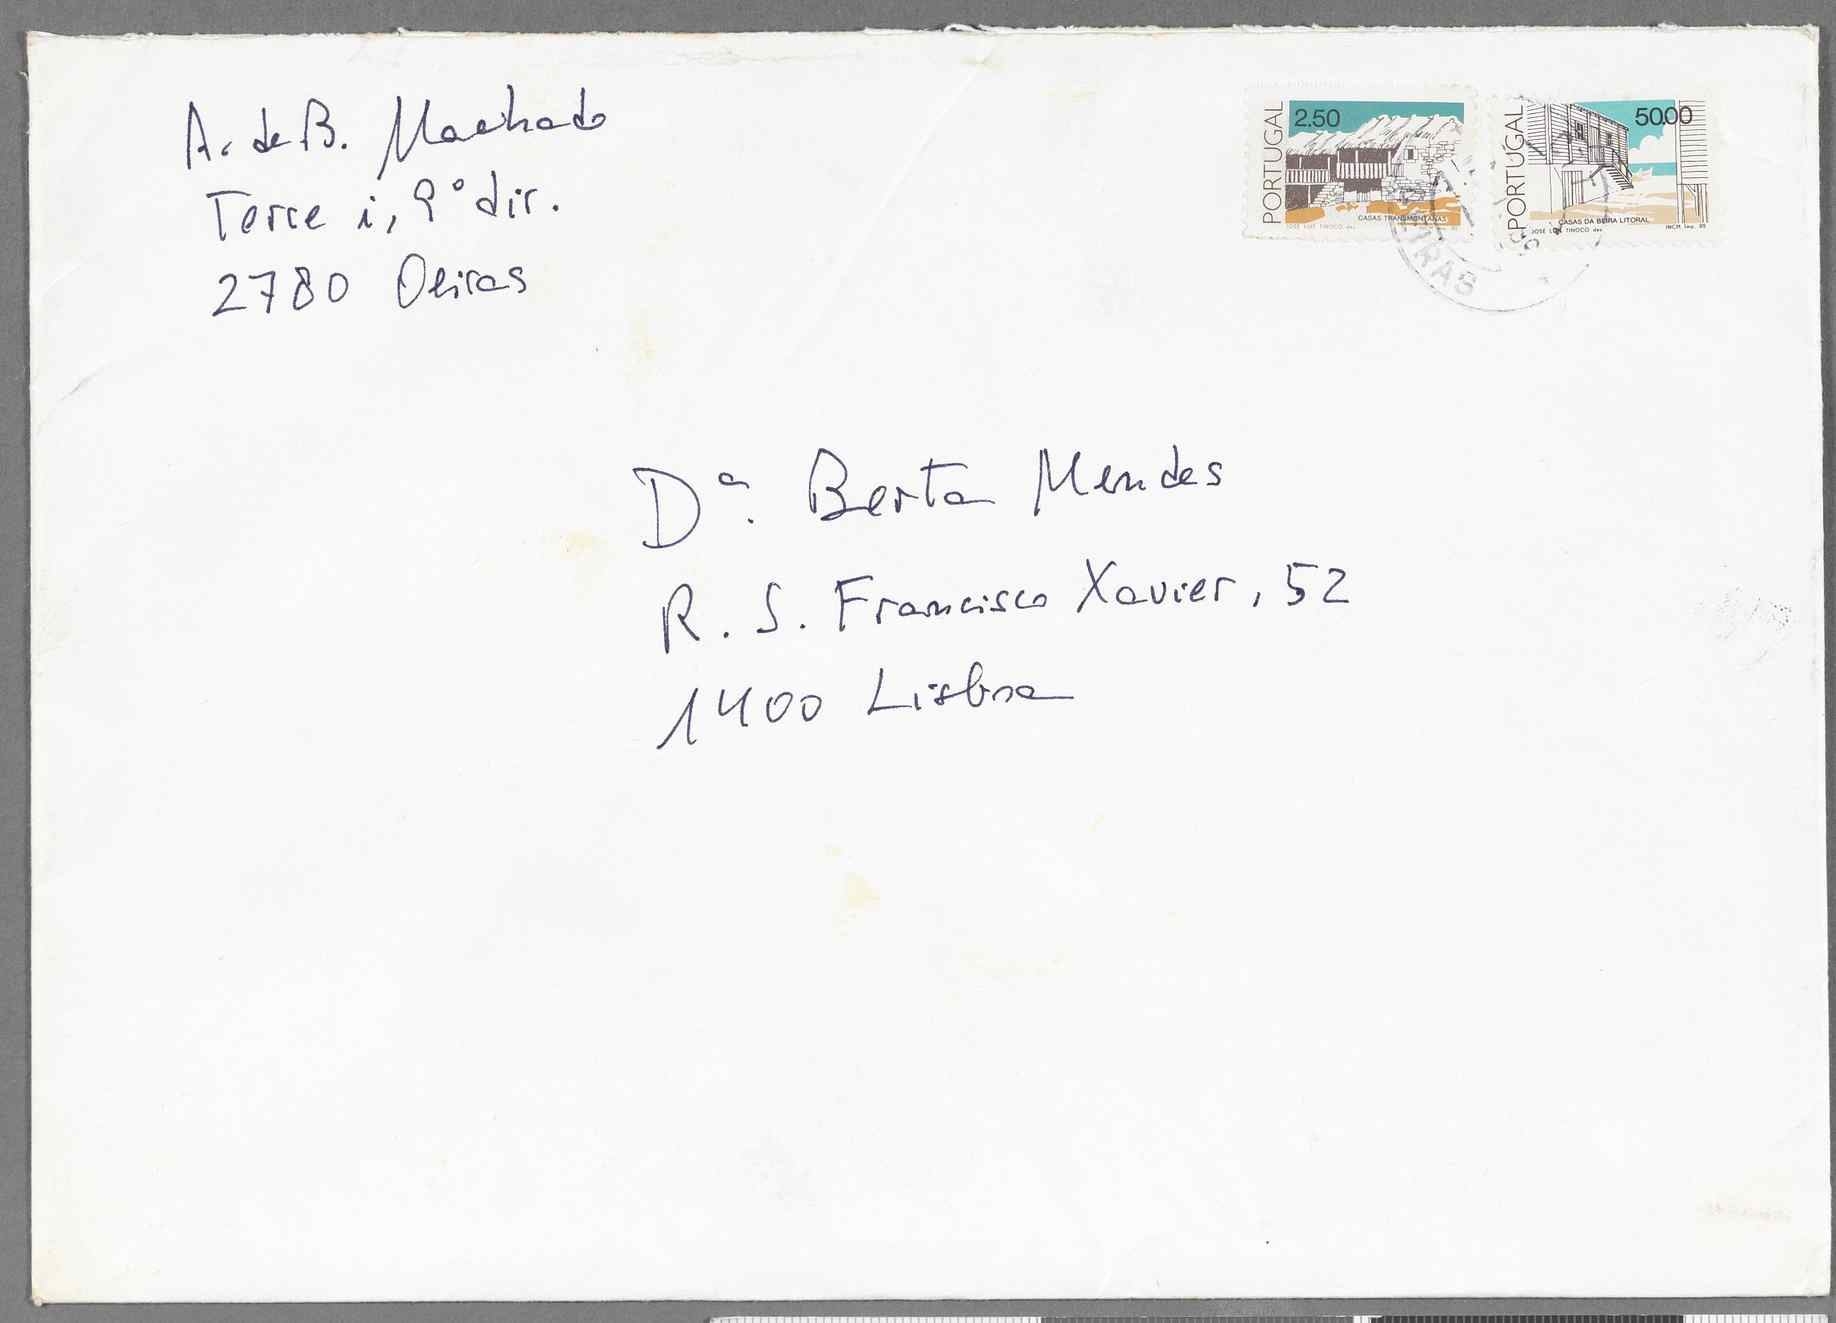 A. de B. Machado
Torre i, 9º dir.
2780 Oeiras
PORTUGAL
2.50
CASAS TRANSMONTANAS
JOSÉ LUIS TINOCO des.
PORTUGAL
50.00
CASAS DA BEIRA LITORAL
JOSÉ LUIS TINOCO des. INCM imp. 85
OEIRAS
Dª. Berta Mendes
R. S. Francisco Xavier, 52
1400 Lisboa